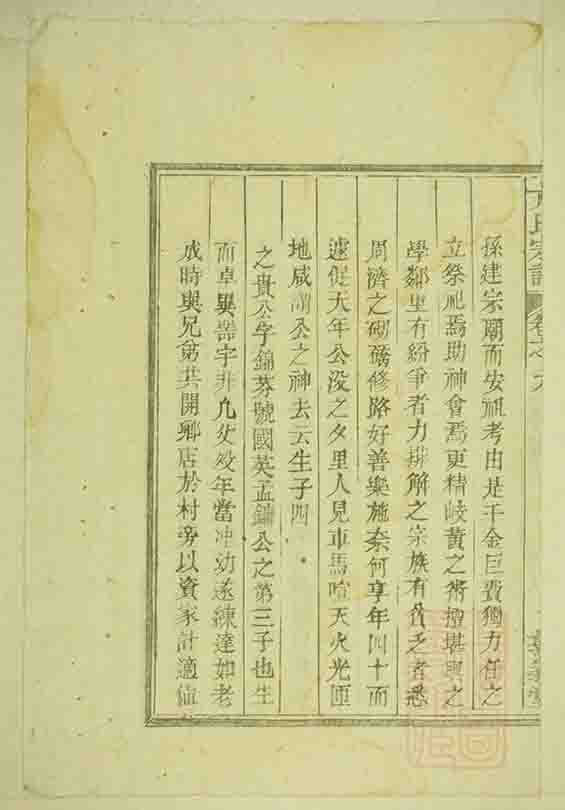 氏宗譜 卷之九
孫建宗廟而安祖考由是千金巨費獨力任之
立祭祀焉助神會焉更精岐黃之術擅堪輿之
學鄰里有紛爭者力排解之宗族有貧乏者悉
周濟之砌橋修路好善樂施奈何享年四十而
遽促天年公没之夕里人見車馬喧天火光匝
地咸謂公之神去云生子四
之貴公字錦芬號國英孟鏽公之第三子也生
而卓異器宇非凡父殁年當冲幼遂練達如老
成時與兄弟共開鄉店於村旁以資家計適値